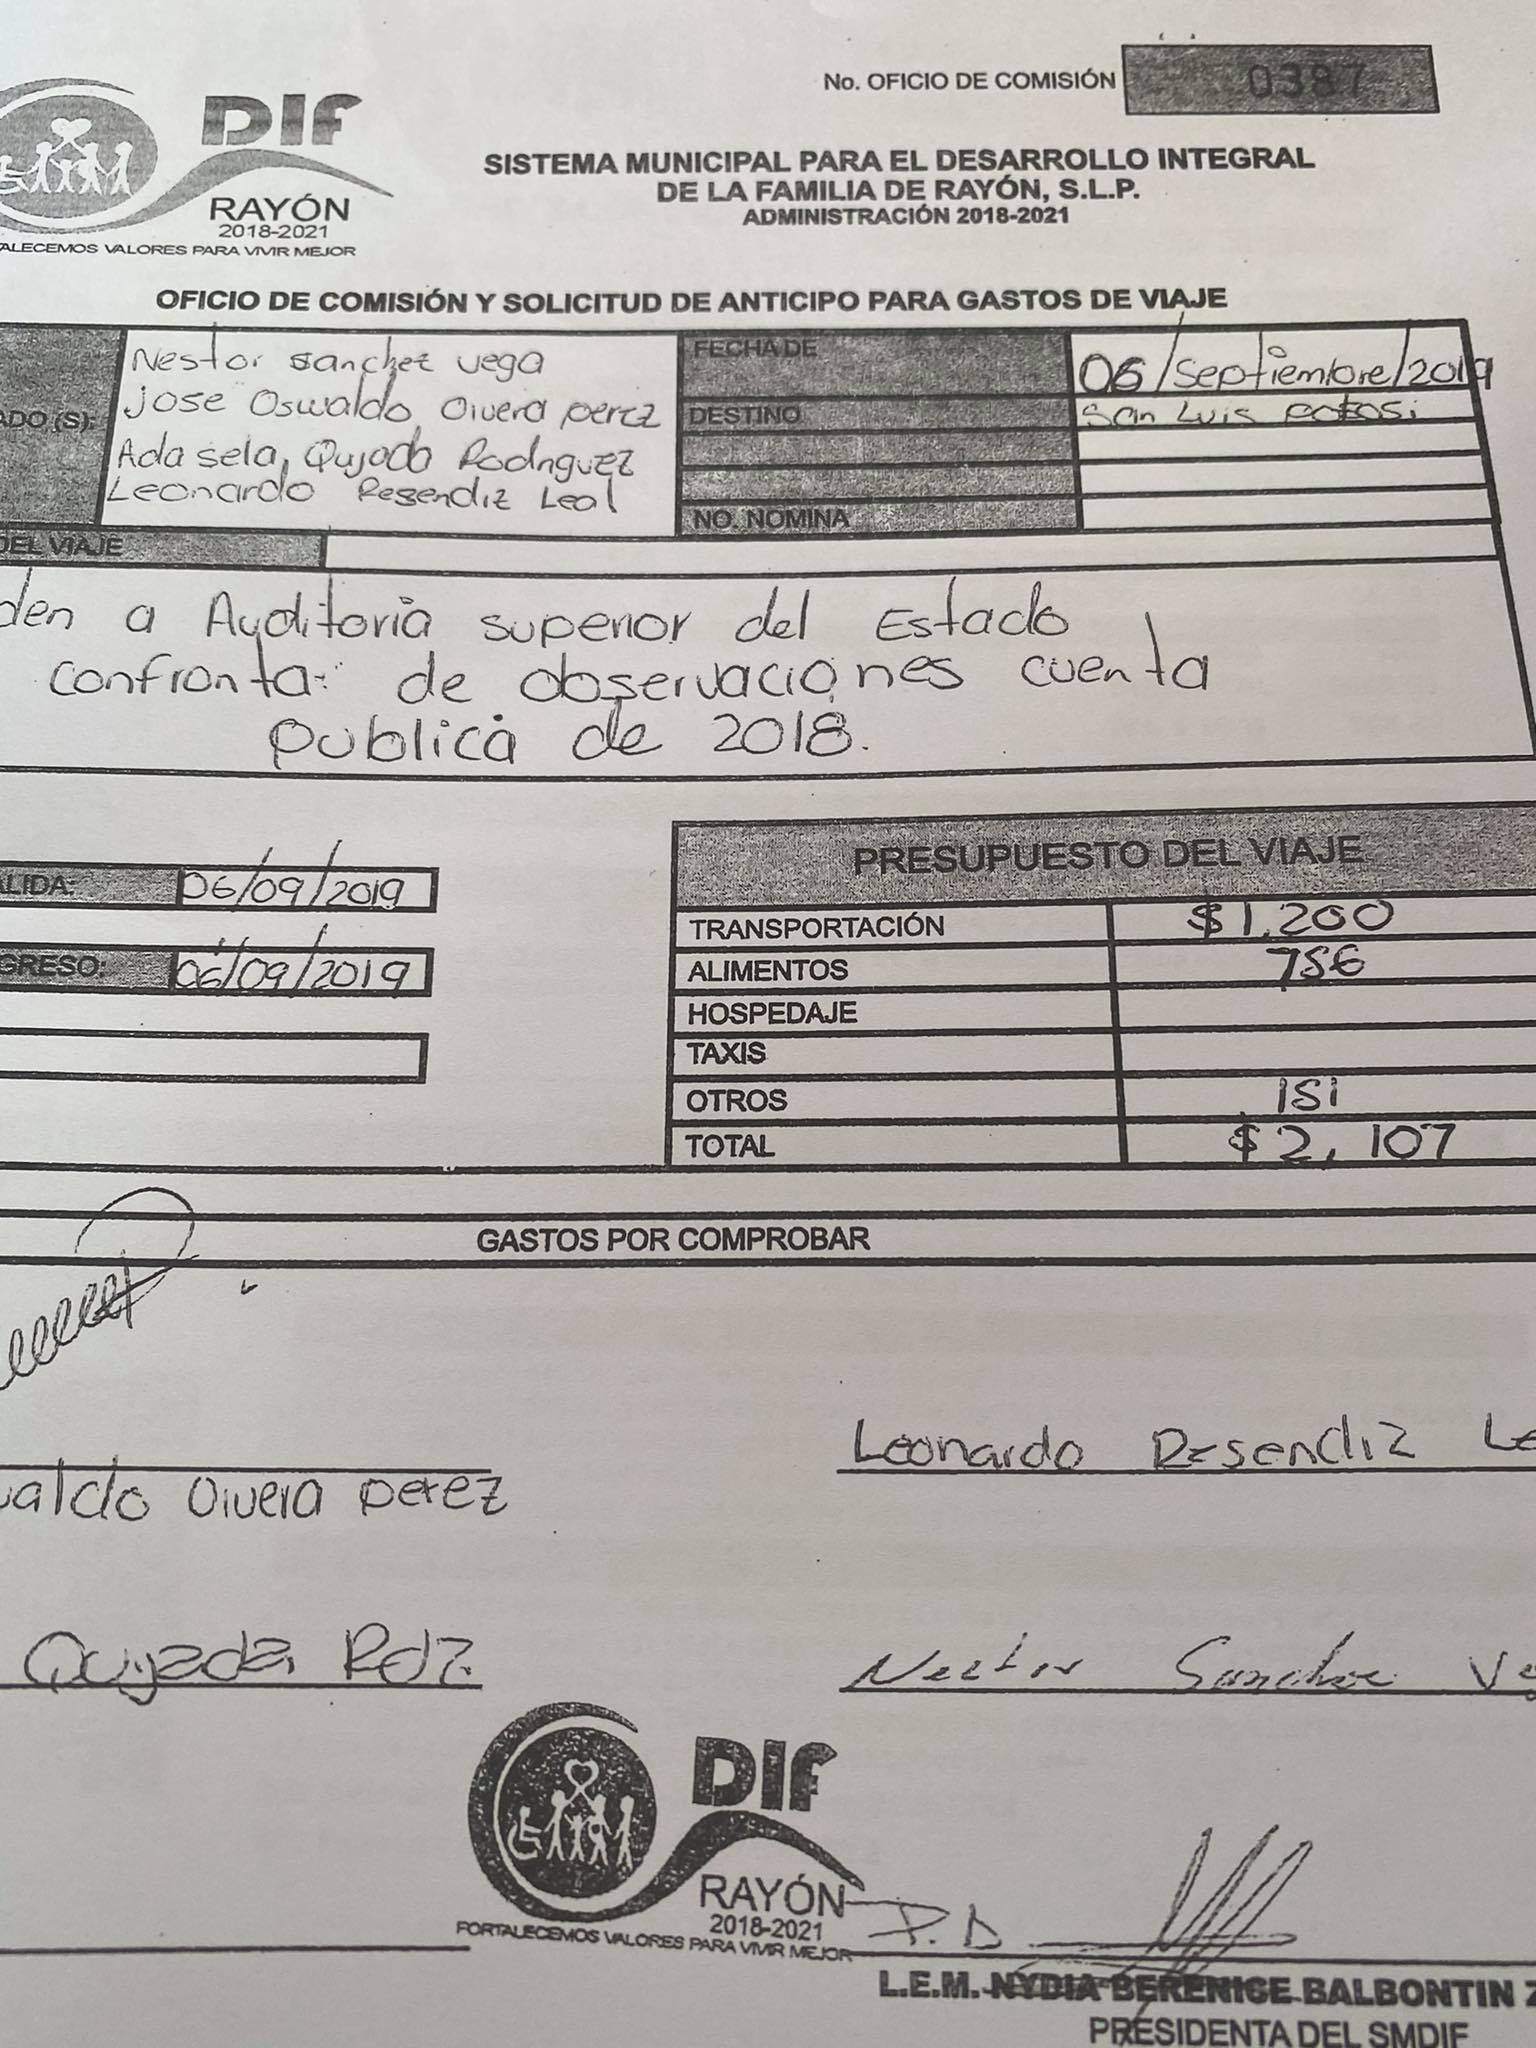 No. OFICIO DE COMISIÓN 0387
DIF
RAYÓN
2018-2021
ALECEMOS VALORES PARA VIVIR MEJOR
SISTEMA MUNICIPAL PARA EL DESARROLLO INTEGRAL
DE LA FAMILIA DE RAYÓN, S.L.P.
ADMINISTRACIÓN 2018-2021
OFICIO DE COMISIÓN Y SOLICITUD DE ANTICIPO PARA GASTOS DE VIAJE
ADO (S):
Nestor Sanchez Vega
Jose Oswaldo Olvera perez
Ada sela, Quijada Rodriguez
Leonardo Resendiz Leal
FECHA DE 06/Septiembre/2019
DESTINO San Luis Potosi
NO. NOMINA
DEL VIAJE
den a Auditoria superior del Estado
confronta: de observaciones cuenta
publica de 2018.
ALIDA: 06/09/2019
GRESO: 06/09/2019
PRESUPUESTO DEL VIAJE
TRANSPORTACIÓN $1,200
ALIMENTOS 756
HOSPEDAJE
TAXIS
OTROS 151
TOTAL $2,107
GASTOS POR COMPROBAR
Leonardo Resendiz Le
waldo Olvera perez
Quijada Rdz.
Nestor Sanchez Ve
DIF
RAYÓN
2018-2021
FORTALECEMOS VALORES PARA VIVIR MEJOR
P.D
L.E.M. NYDIA BERENICE BALBONTIN Z
PRESIDENTA DEL SMDIF